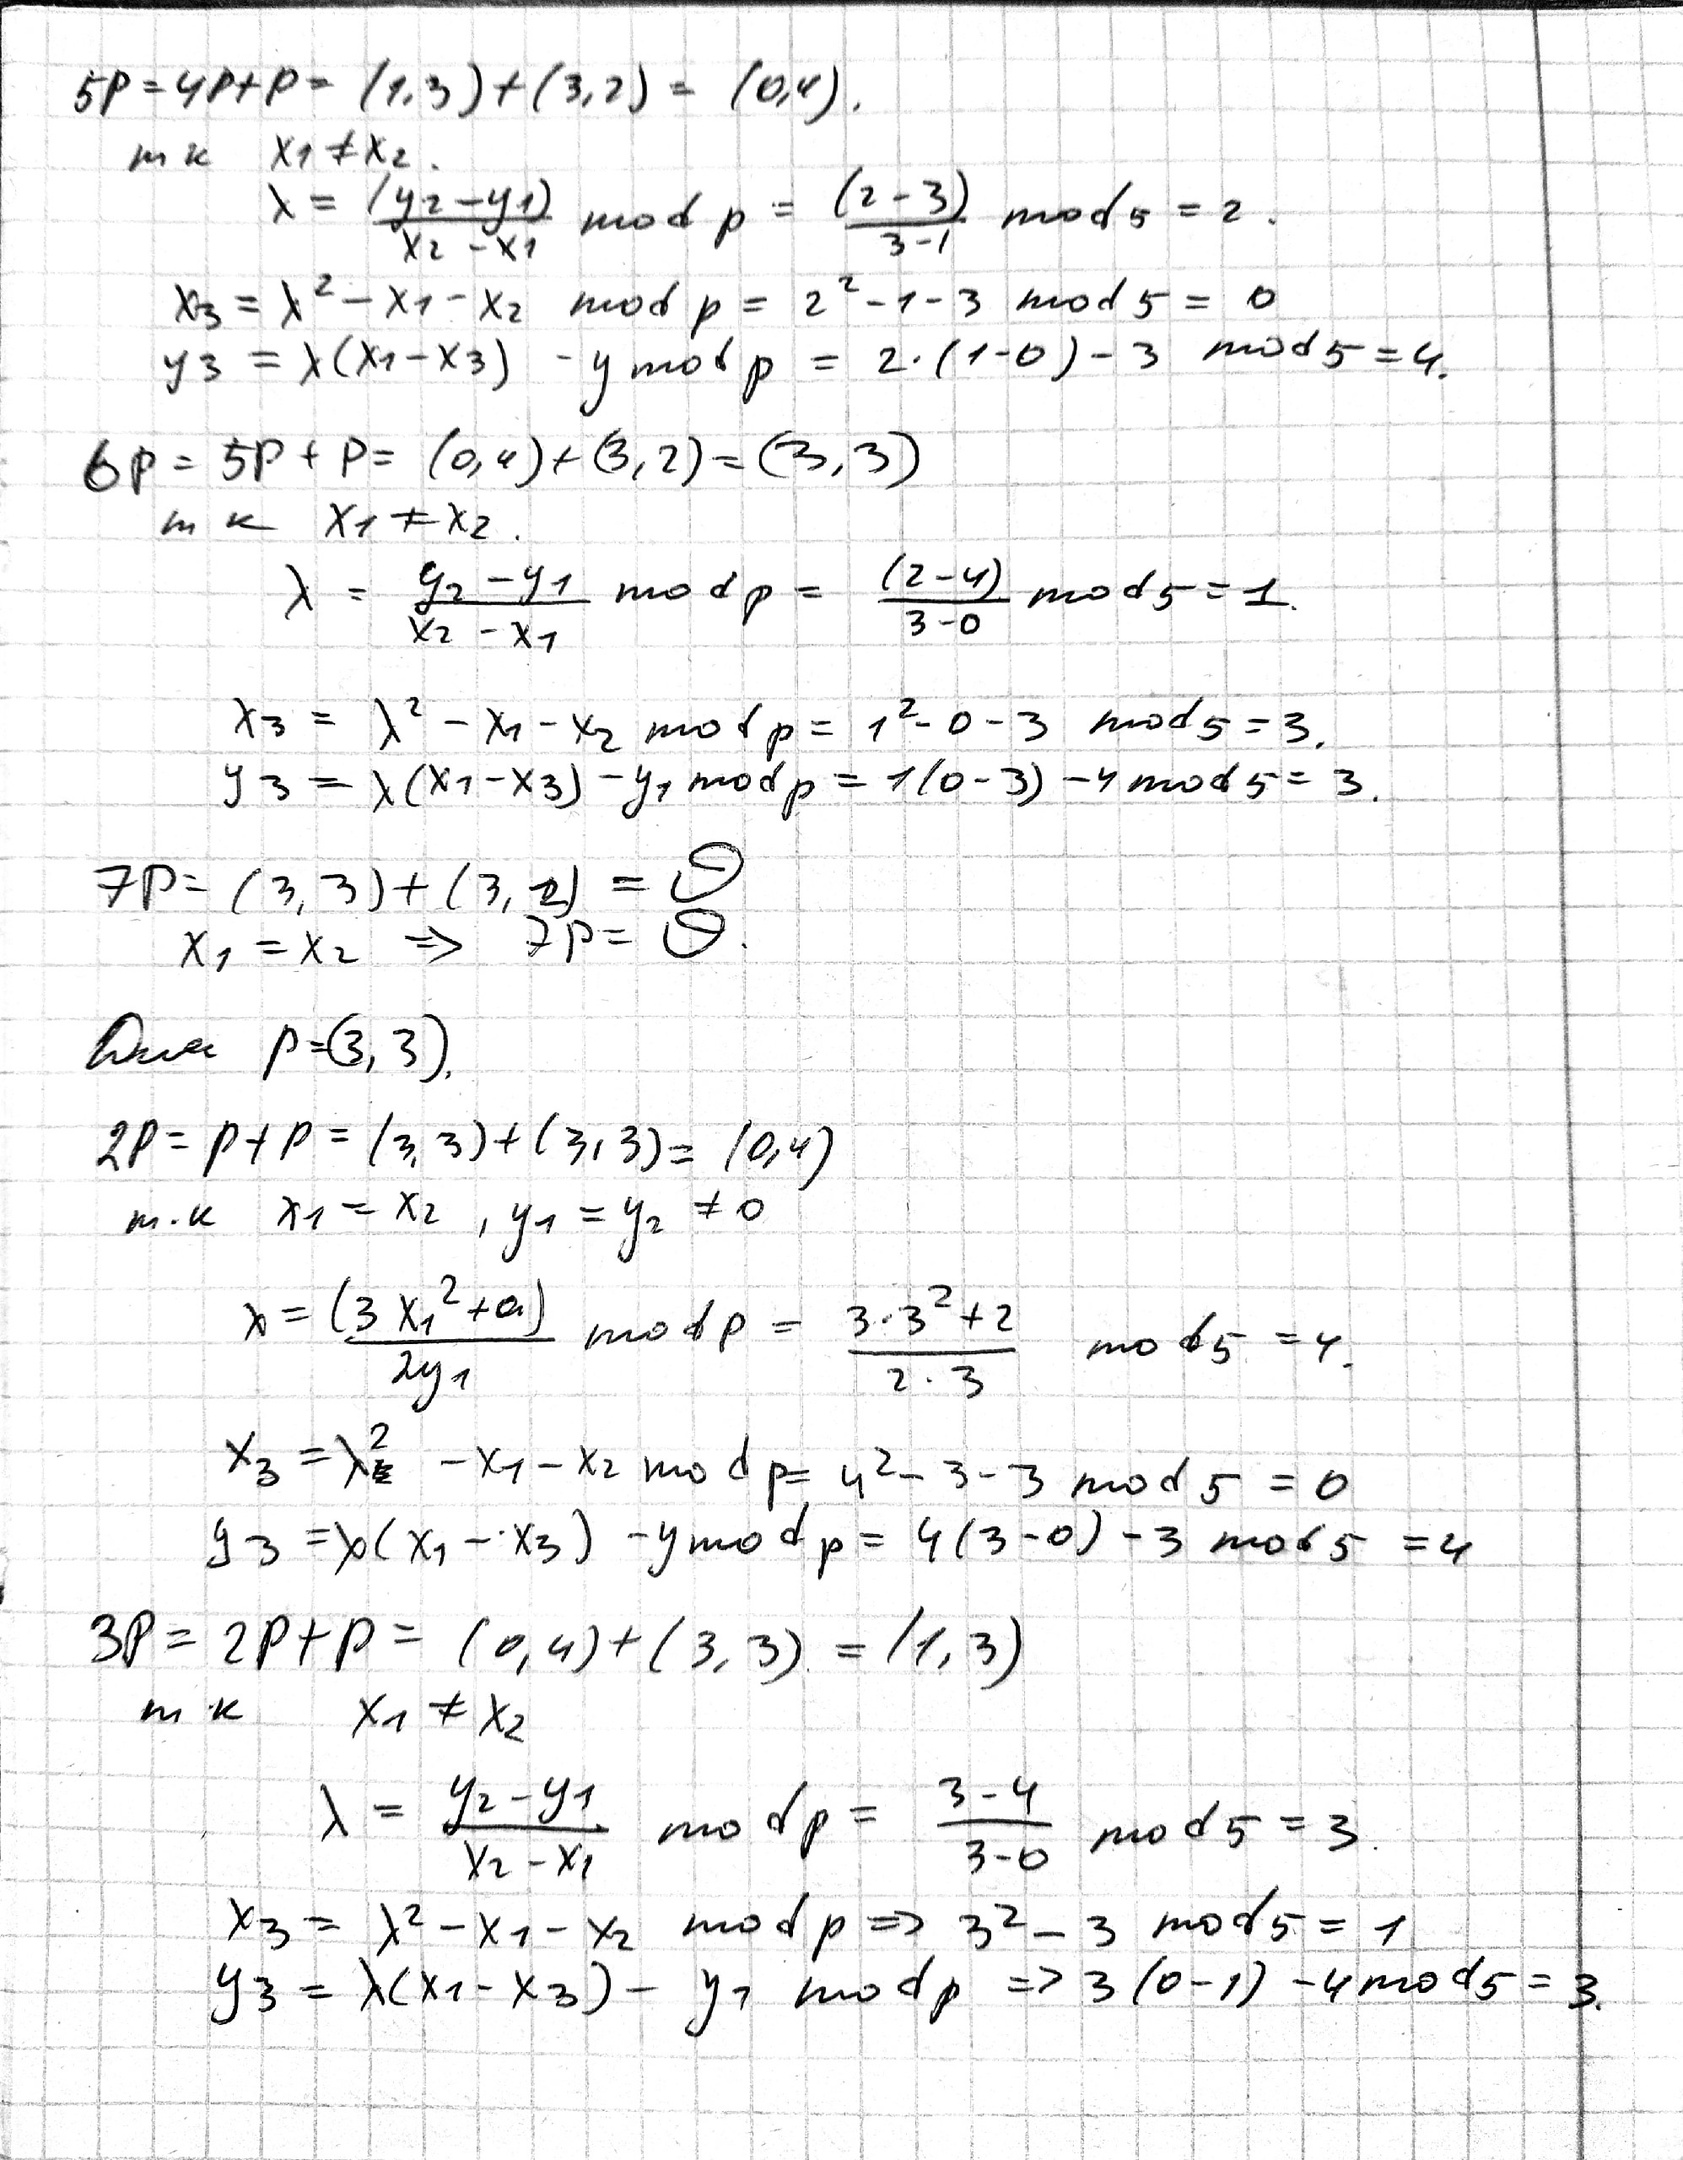 5P = 4P + P = (1,3) + (3,2) = (0,4).
т к x₁ ≠ x₂.
λ = (y₂ - y₁) / x₂ - x₁ mod p = (2 - 3) / 3 - 1 mod 5 = 2.
x₃ = λ² - x₁ - x₂ mod p = 2² - 1 - 3 mod 5 = 0
y₃ = λ(x₁ - x₃) - y mod p = 2·(1-0) - 3 mod 5 = 4.
6P = 5P + P = (0,4) + (3,2) = (3,3)
т к x₁ ≠ x₂.
λ = y₂ - y₁ / x₂ - x₁ mod p = (2 - 4) / 3 - 0 mod 5 = 1.
x₃ = λ² - x₁ - x₂ mod p = 1² - 0 - 3 mod 5 = 3.
y₃ = λ(x₁ - x₃) - y₁ mod p = 1(0 - 3) - 4 mod 5 = 3.
7P = (3,3) + (3,2) = O
x₁ = x₂ ⇒ 7P = O.
Для P = (3,3).
2P = P + P = (3,3) + (3,3) = (0,4)
т.к x₁ = x₂, y₁ = y₂ ≠ 0
λ = (3x₁² + a) / 2y₁ mod p = 3·3² + 2 / 2·3 mod 5 = 4.
x₃ = λ² - x₁ - x₂ mod p = 4² - 3 - 3 mod 5 = 0
y₃ = λ(x₁ - x₃) - y mod p = 4(3-0) - 3 mod 5 = 4
3P = 2P + P = (0,4) + (3,3) = (1,3)
т к x₁ ≠ x₂
λ = y₂ - y₁ / x₂ - x₁ mod p = 3 - 4 / 3 - 0 mod 5 = 3.
x₃ = λ² - x₁ - x₂ mod p => 3² - 3 mod 5 = 1
y₃ = λ(x₁ - x₃) - y₁ mod p => 3(0-1) - 4 mod 5 = 3.